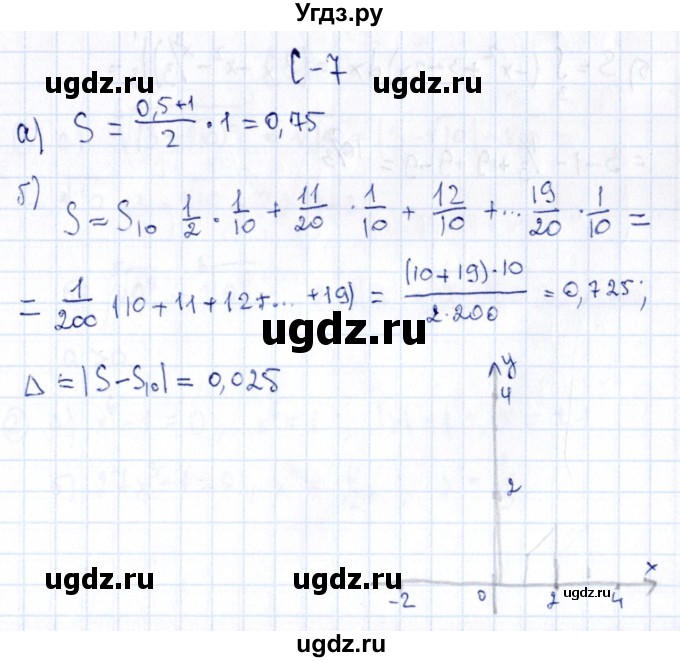 Угдз.ру
С-7
ugdz.ru ugdz.ru
а) S = \frac{0,5+1}{2} · 1 = 0,75
б) S ≈ S₁₀ \frac{1}{2} · \frac{1}{10} + \frac{11}{20} · \frac{1}{10} + \frac{12}{10} + ... \frac{19}{20} · \frac{1}{10} =
ugdz.ru ugdz.ru
= \frac{1}{200} (10+11+12+...+19) = \frac{(10+19)·10}{2·200} = 0,725;
ugdz.ru
Δ = |S-S₁₀| = 0,025
y
4
ugdz.ru ugdz.ru
2
x
ugdz.ru ugdz.ru ugdz.ru
-2 0 2 4
ugdz.ru